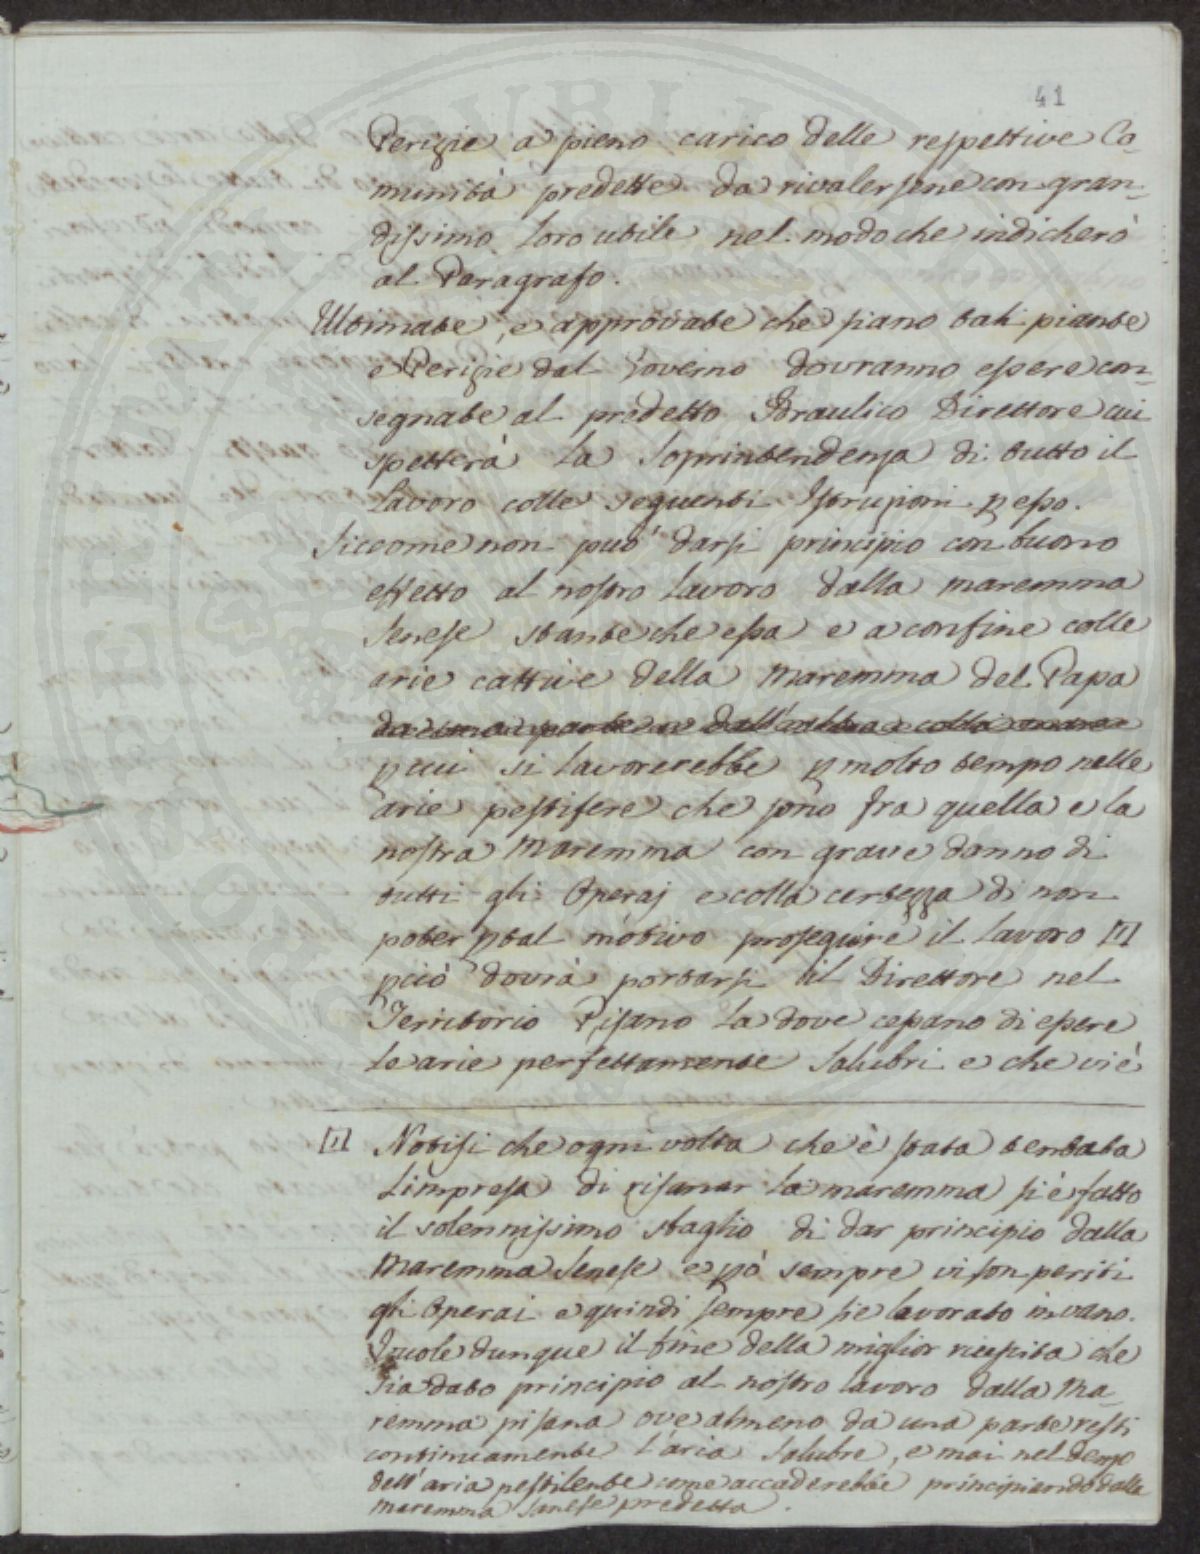 41
Perizie a pieno carico delle respettive Co-
munità predette da rivalersene con gran-
dissimo loro utile nel modo che indicherò
al Paragrafo.
Ultimate, e approvate che siano tali piante
e Perizie dal Governo dovranno essere con-
segnate al predetto Idraulico Direttore cui
spetterà la soprintendenza di tutto il
lavoro colle seguenti Istruzioni p esso.
Siccome non può darsi principio con buono
effetto al nostro lavoro dalla maremma
Senese stante che essa è a confine colle
arie cattive della Maremma del Papa
da una parte e dall'altra colla
p cui si lavorerebbe p molto tempo nelle
arie pestifere che sono fra quella e la
nostra Maremma con grave danno di
tutti gli Operaj e colla certezza di non
poter p tal motivo proseguire il lavoro [1]
p ciò dovrà portarsi il Direttore nel
Territorio Pisano la dove cessano di essere
le arie perfettamente salubri e che vi è
[1] Notisi che ogni volta che è stata tentata
l'impresa di risanar la maremma si è fatto
il solennissimo sbaglio di dar principio dalla
Maremma Senese e p ò sempre vi son periti
gli Operai e quindi sempre si è lavorato invano.
Vuole dunque il fine della miglior riescita che
sia dato principio al nostro lavoro dalla Ma-
remma pisana ove almeno da una parte resti
continuamente l'aria salubre, e mai nel
dell'aria pestilente come accaderebbe principiando dalla
maremma Sanese predetta.